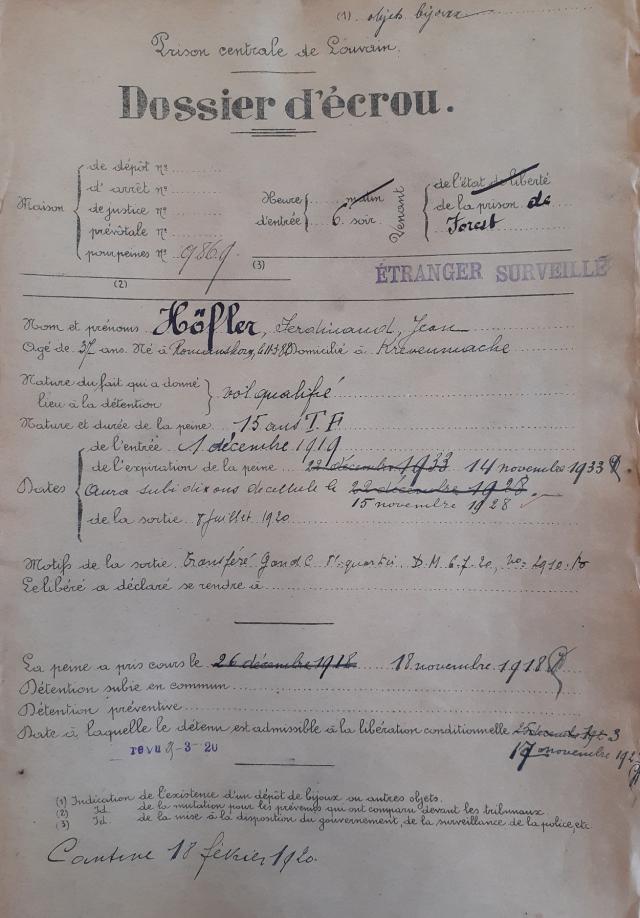 (1) objets bijoux
Prison centrale de Louvain.
Dossier d'écrou.
Maison
de dépôt nº
d'arrêt nº
de justice nº
prévôtale nº
pour peines nº 9869
(2)
Heure d'entrée
matin
6. soir
(3)
Venant
de l'état de liberté
de la prison de
Forest
ÉTRANGER SURVEILLÉ
Nom et prénoms Höfler, Ferdinand, Jean
Agé de 37 ans. Né à Domicilié à
Nature du fait qui a donné lieu à la détention
vol qualifié
Nature et durée de la peine 15 ans T. F
Dates
de l'entrée 1 décembre 1919
de l'expiration de la peine 22 décembre 1933 14 novembre 1933
Aura subi dix ans de cellule le 22 décembre 1928.
15 novembre 1928
de la sortie 8 juillet 1920
Motifs de la sortie transféré Gand C D. M. 6-7-20,
Le libéré a déclaré se rendre à
La peine a pris cours le 26 décembre 1918 18 novembre 1918
Détention subie en commun
Détention préventive
Date à laquelle le détenu est admissible à la libération conditionnelle
revu 9-3-20
17 novembre
(1) Indication de l'existence d'un dépôt de bijoux ou autres objets.
(2) Id. de la mutation pour les prévenus qui ont comparu devant les tribunaux.
(3) Id. de la mise à la disposition du gouvernement, de la surveillance de la police, etc.
Cantine 18 février 1920.